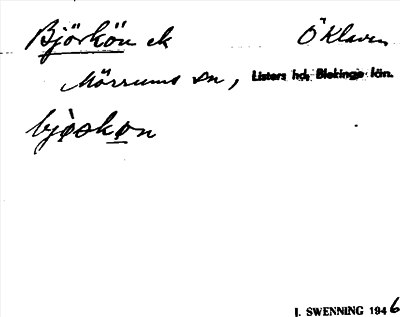 Björkön ek Ö Klaven
Mörrums sn, Listers hd, Blekinge län.
bjøskøn
J. SWENNING 1946